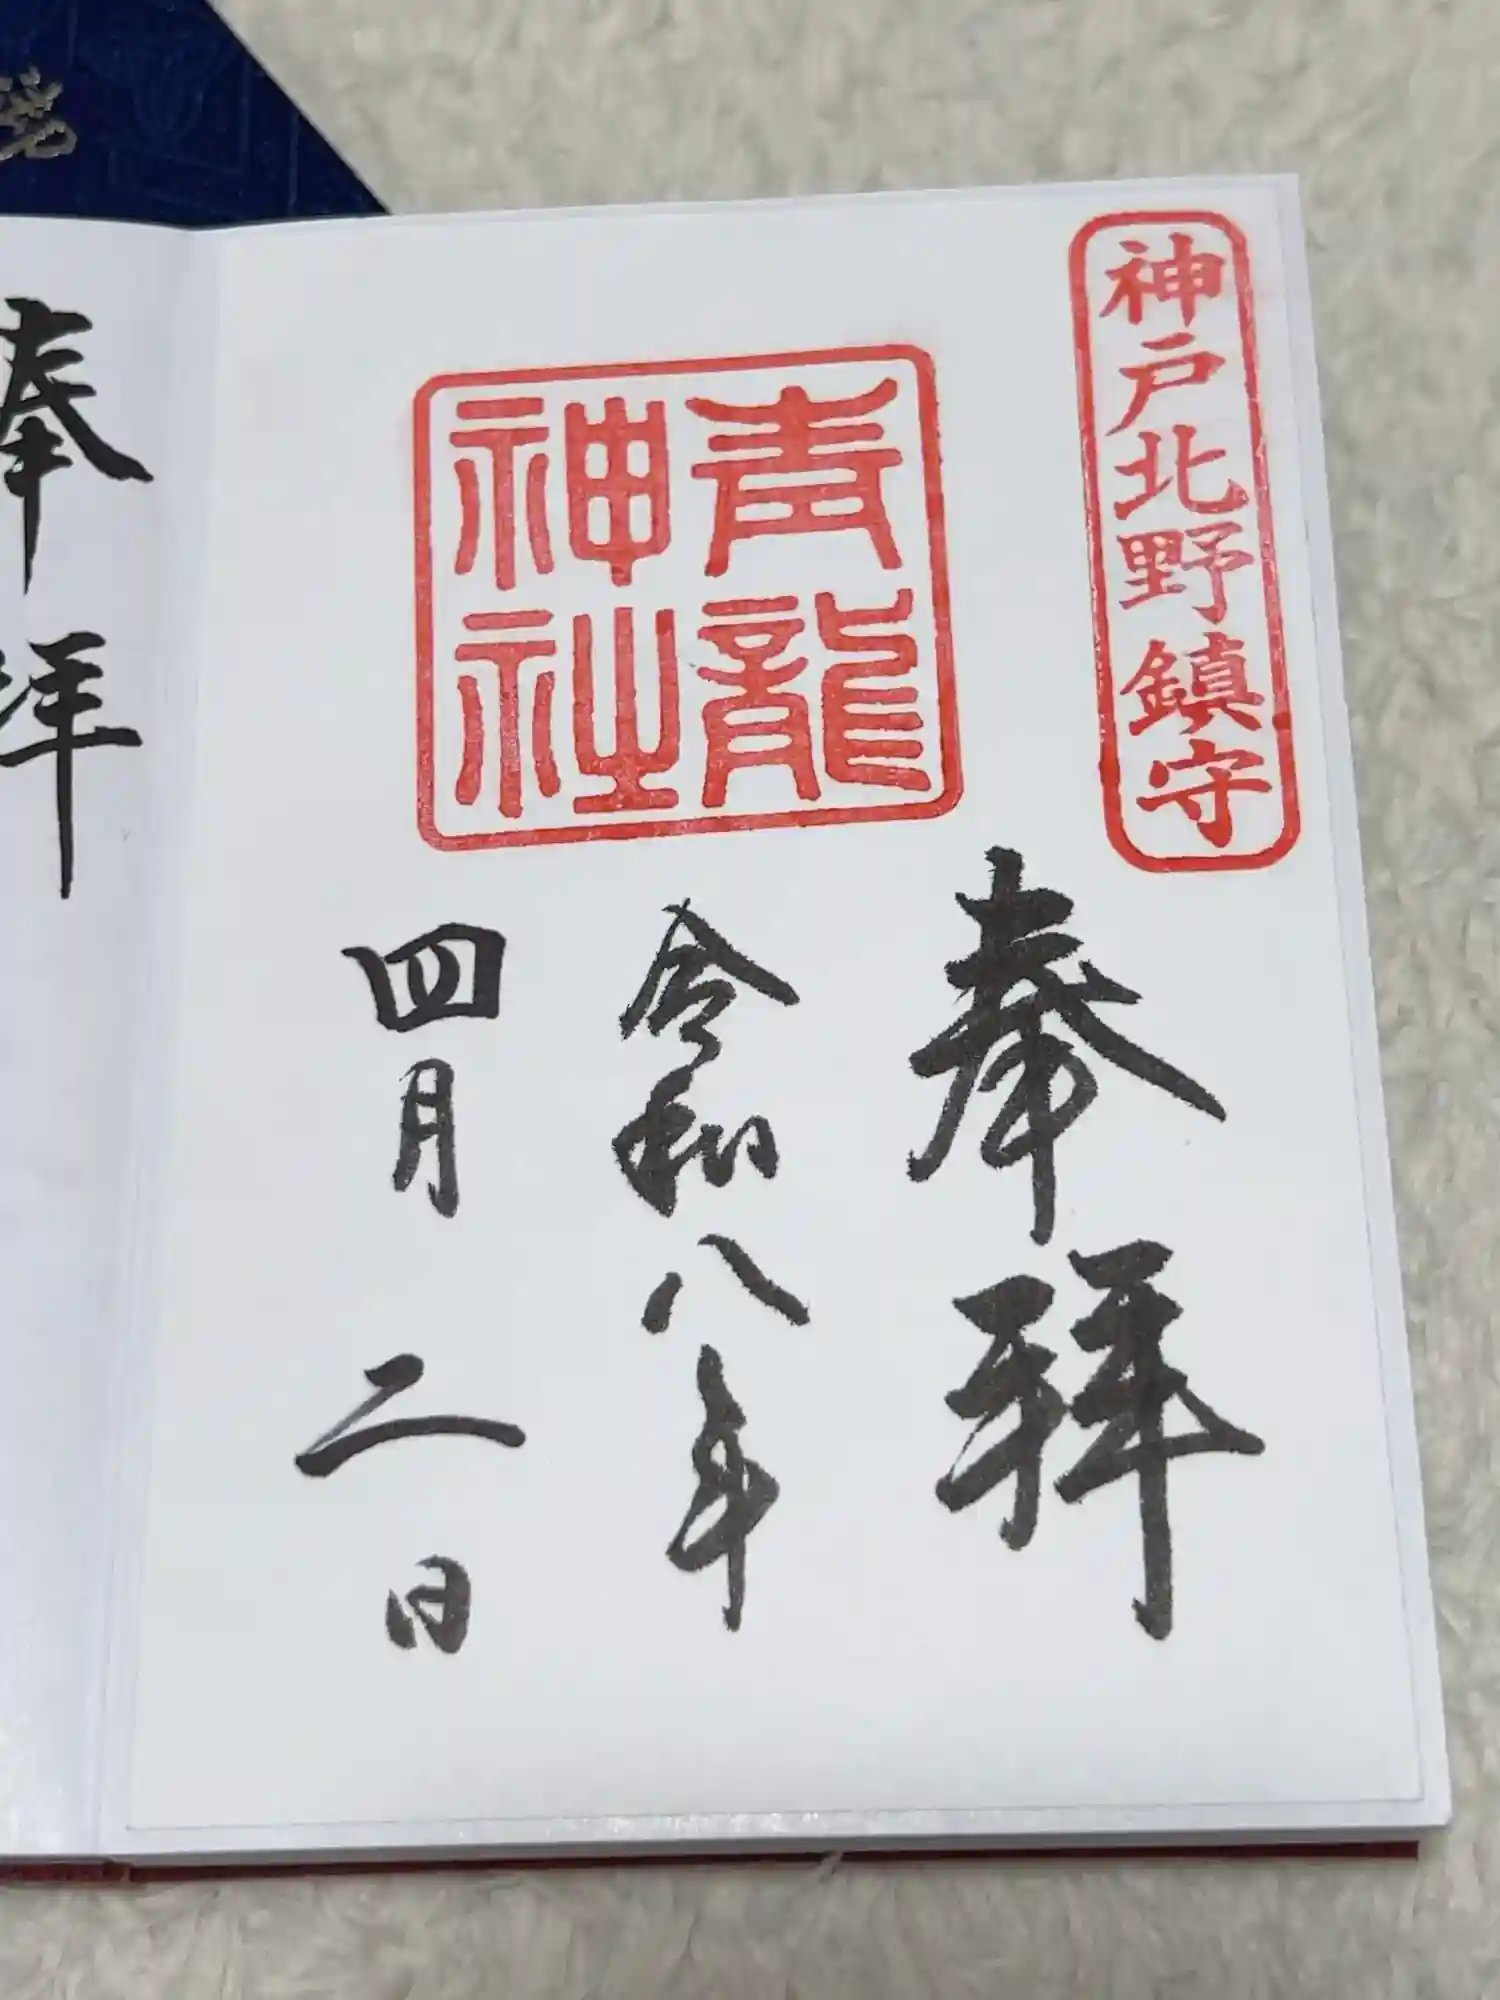 神戸北野鎮守
青龍
神社
奉拝
令和八年
四月二日
奉拝